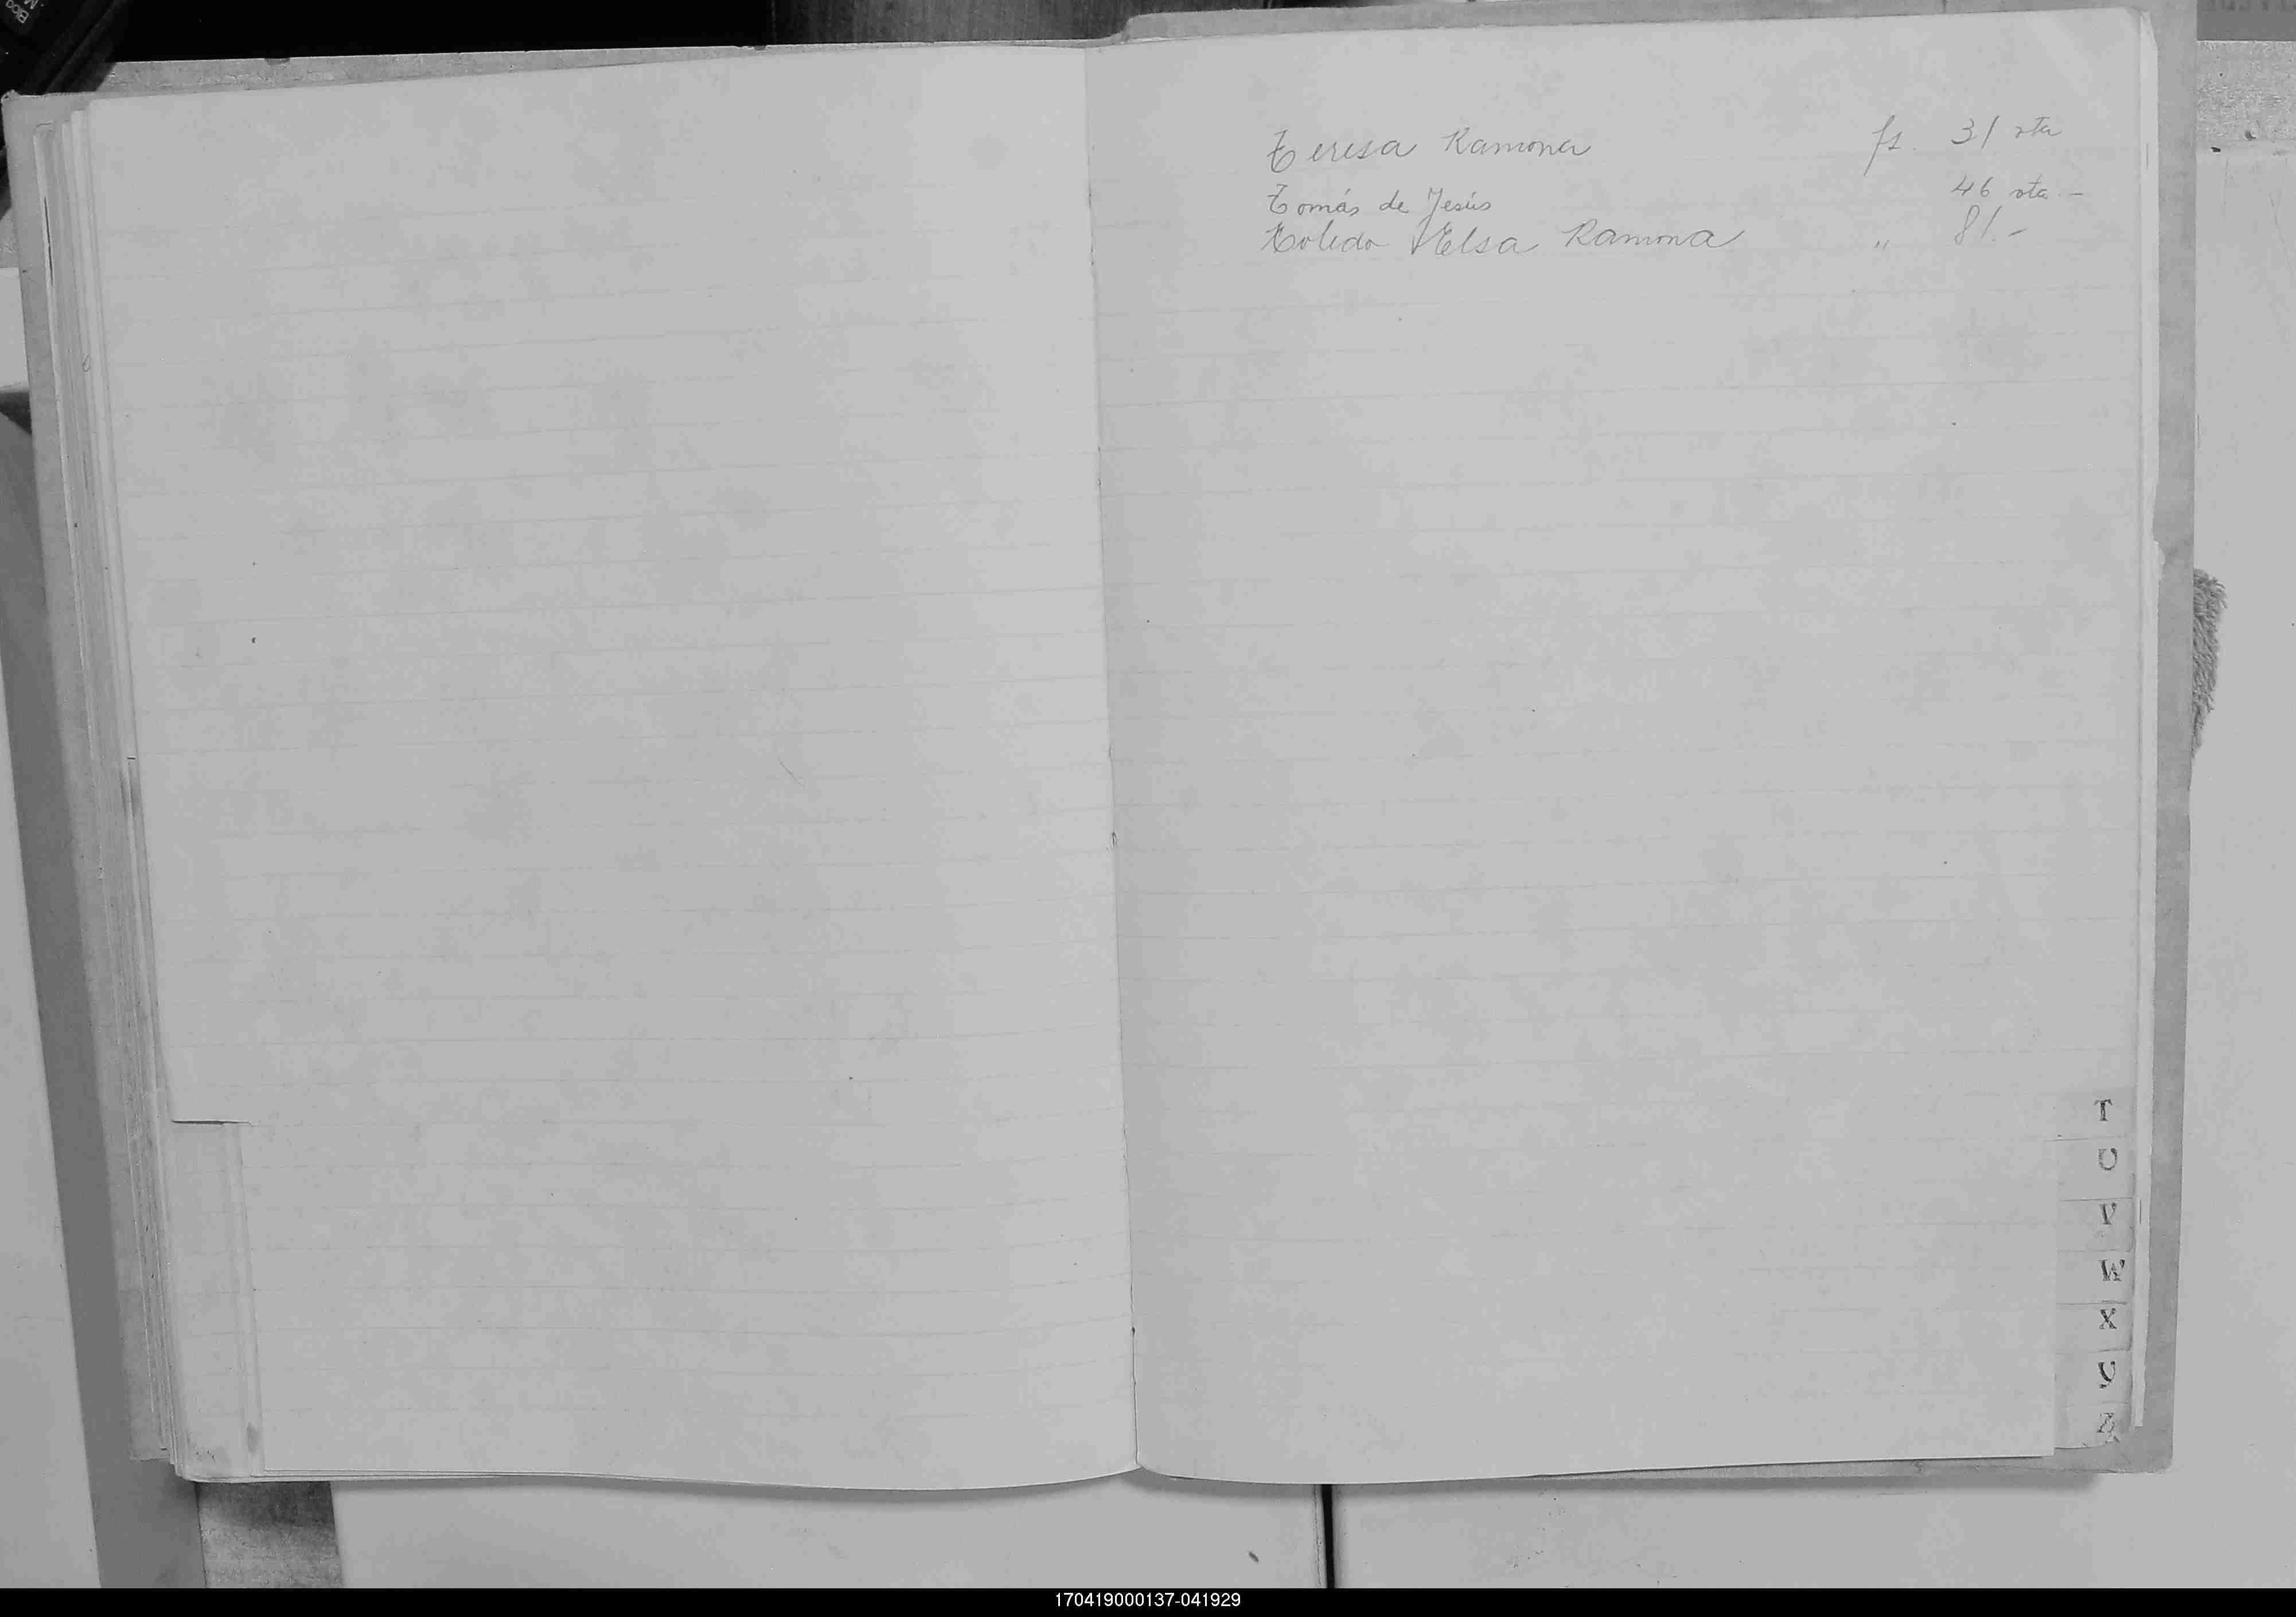 Teresa Ramona fs. 31 vta
Tomás de Jesús 46 vta. -
Toledo Elsa Ramona " 81.-
T
U
V
W
X
Y
Z
170419000137-041929